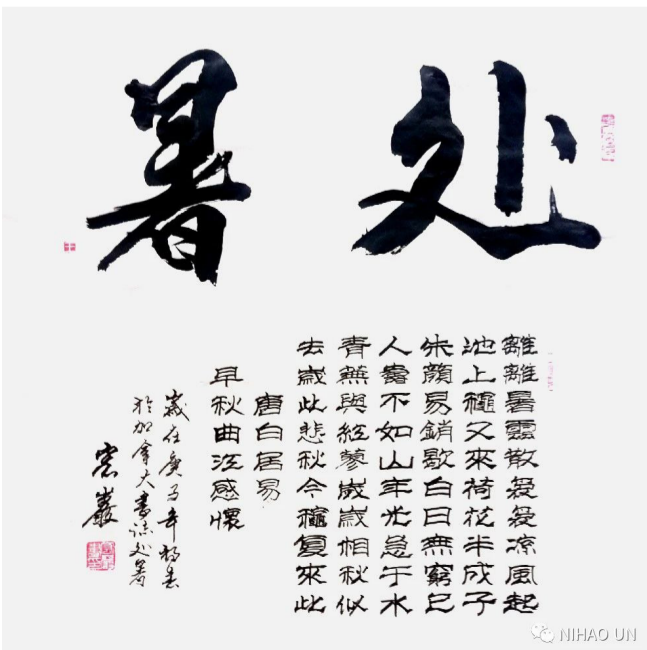 处暑
離離暑雲散裊裊凉風起
池上穐又來荷花半成子
朱顏易銷歇白日無窮已
人壽不如山年光急于水
青蕪與紅蓼歲歲相秋似
去歲此悲秋今穐复來此
唐白居易
早秋曲江感懷
歲在庚子年
於加拿大書誌处暑
NIHAO UN